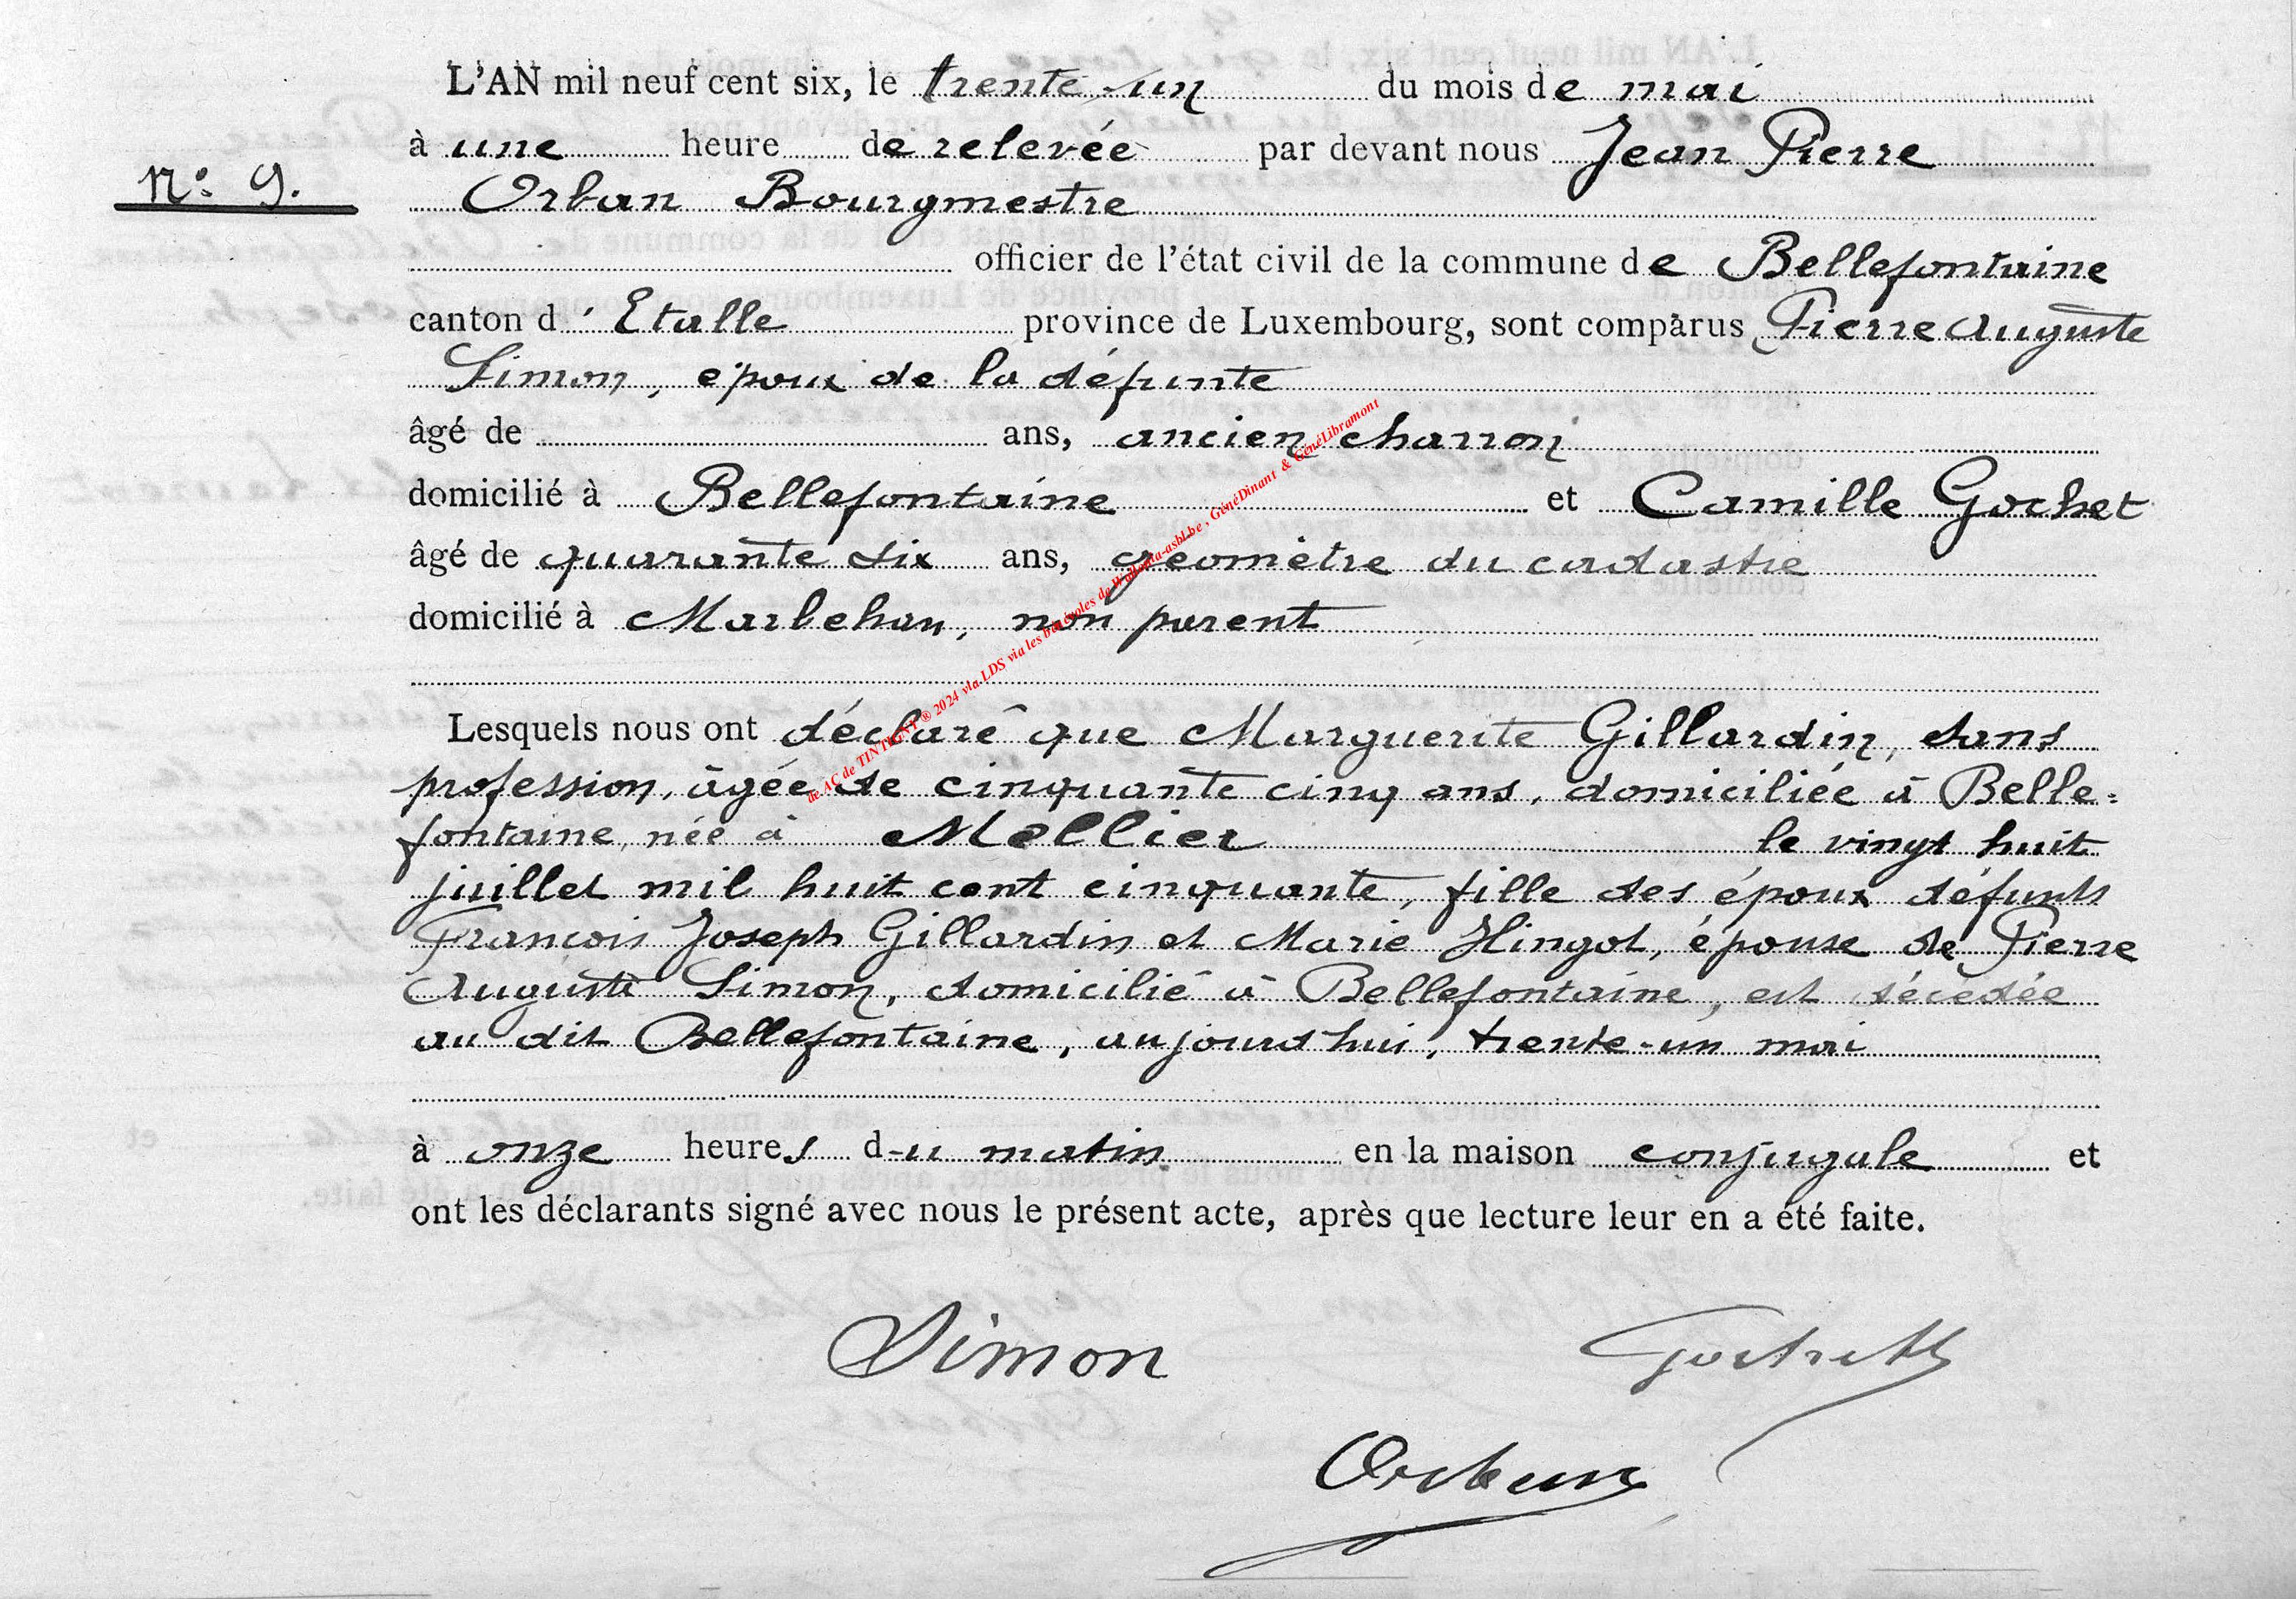 L'AN mil neuf cent six, le trente-un du mois de mai
à une heure de relevée par devant nous Jean Pierre
N° 9.
Orban Bourgmestre
officier de l'état civil de la commune de Bellefontaine
canton d'Etalle province de Luxembourg, sont comparus Pierre Auguste
Simon, époux de la défunte
âgé de ans, ancien charron
domicilié à Bellefontaine et Camille Gochet
âgé de quarante six ans, géomètre du cadastre
domicilié à Marbehan, non parent
Lesquels nous ont déclaré que Marguerite Gillardin, sans
profession, âgée de cinquante cinq ans, domiciliée à Belle=
fontaine, née à Mellier le vingt huit
juillet mil huit cent cinquante, fille des époux défunts
François Joseph Gillardin et Marie Hingot, épouse de Pierre
Auguste Simon, domicilié à Bellefontaine, est décédée
au dit Bellefontaine, aujourd'hui, trente-un mai
à onze heures du matin en la maison conjugale et
ont les déclarants signé avec nous le présent acte, après que lecture leur en a été faite.
Simon
Orban
de AC de TINTIGNY ® 2024 via LDS via les bénévoles de Wallonia-asbl.be, GénéDinant & GénéLibramont